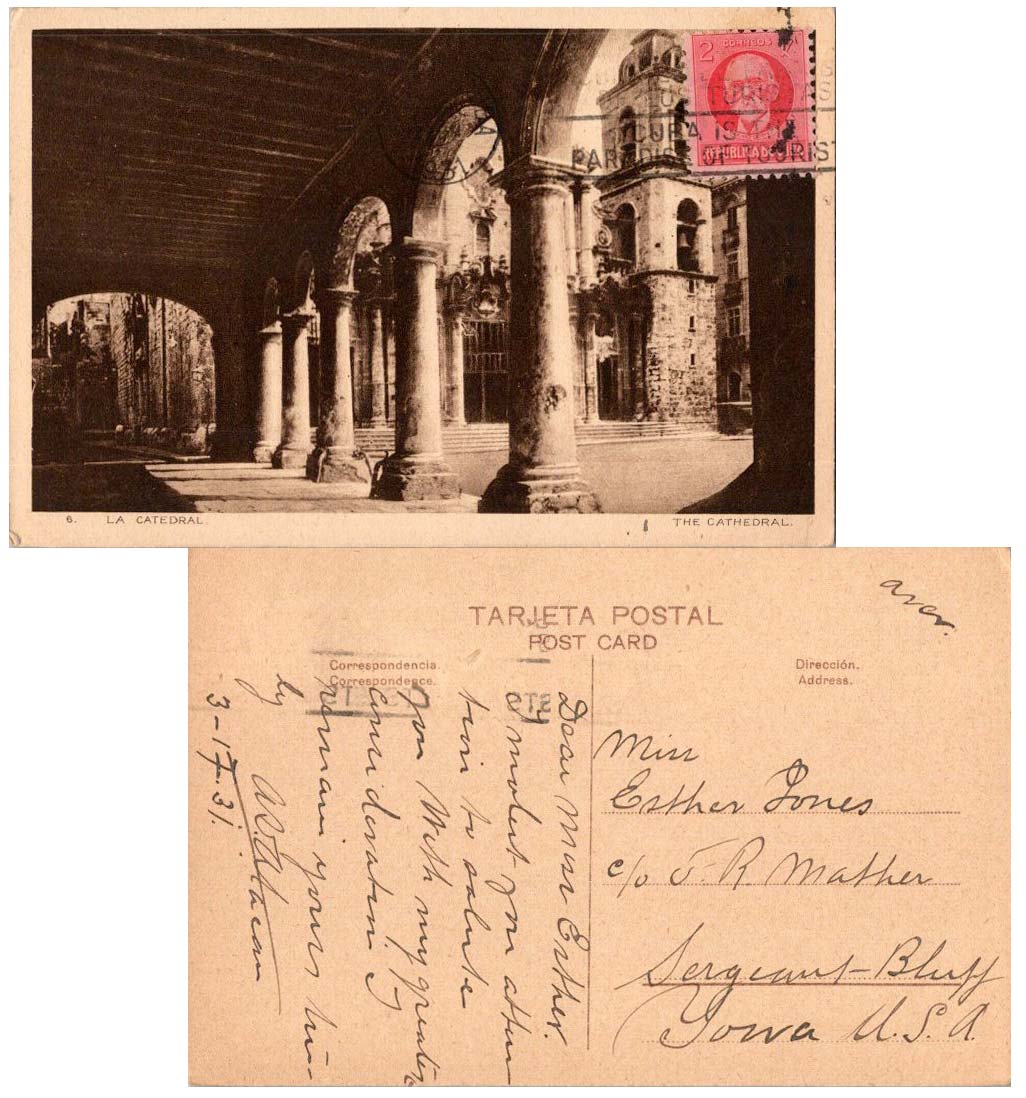 2 CORREOS
REPUBLICA DE CUBA
CUBA IS THE
PARADISE OF TOURIST
6. LA CATEDRAL.
THE CATHEDRAL.
TARJETA POSTAL
POST CARD
Correspondencia.
Correspondence.
Dirección.
Address.
Dear Miss Esther.
I molest you atten
tion to salute
you With my greatest
Consideration I
remain yours
by
3-17.31.
Miss
Esther Jones
c/o F. R. Mather
Sergeant-Bluff
Iowa U.S.A.